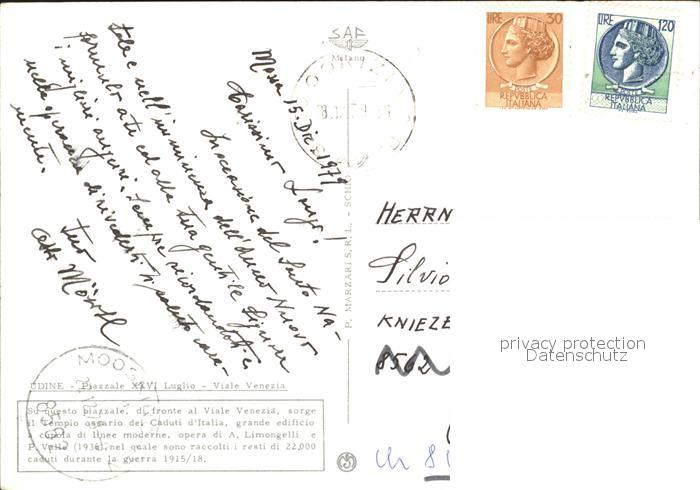 SAF
Milano
LIRE 30
REPVBBLICA
ITALIANA
LIRE 120
REPVBBLICA
ITALIANA
Mossa 15. Dic. 1979
Carissimo
In occasione del Santo Na-
tale e nell'imminenza dell'Anno Nuovo
formulo a te ed alla tua gentile Signora
i migliori auguri. Sempre ricordandoti e
nella speranza di rivederti, ti saluto cara-
mente.
tuo
HERRN
Silvio
KNIEZE
8562
UDINE - Piazzale XXVI Luglio - Viale Venezia
Su questo piazzale, di fronte al Viale Venezia, sorge
il Tempio ossario dei Caduti d'Italia, grande edificio
a cupola di linee moderne, opera di A. Limongelli e
P. Valle (1936) nel quale sono raccolti i resti di 22,000
caduti durante la guerra 1915/18.
P. MARZARI S.R.L. - SCHI
MOOS
8562
privacy protection
Datenschutz